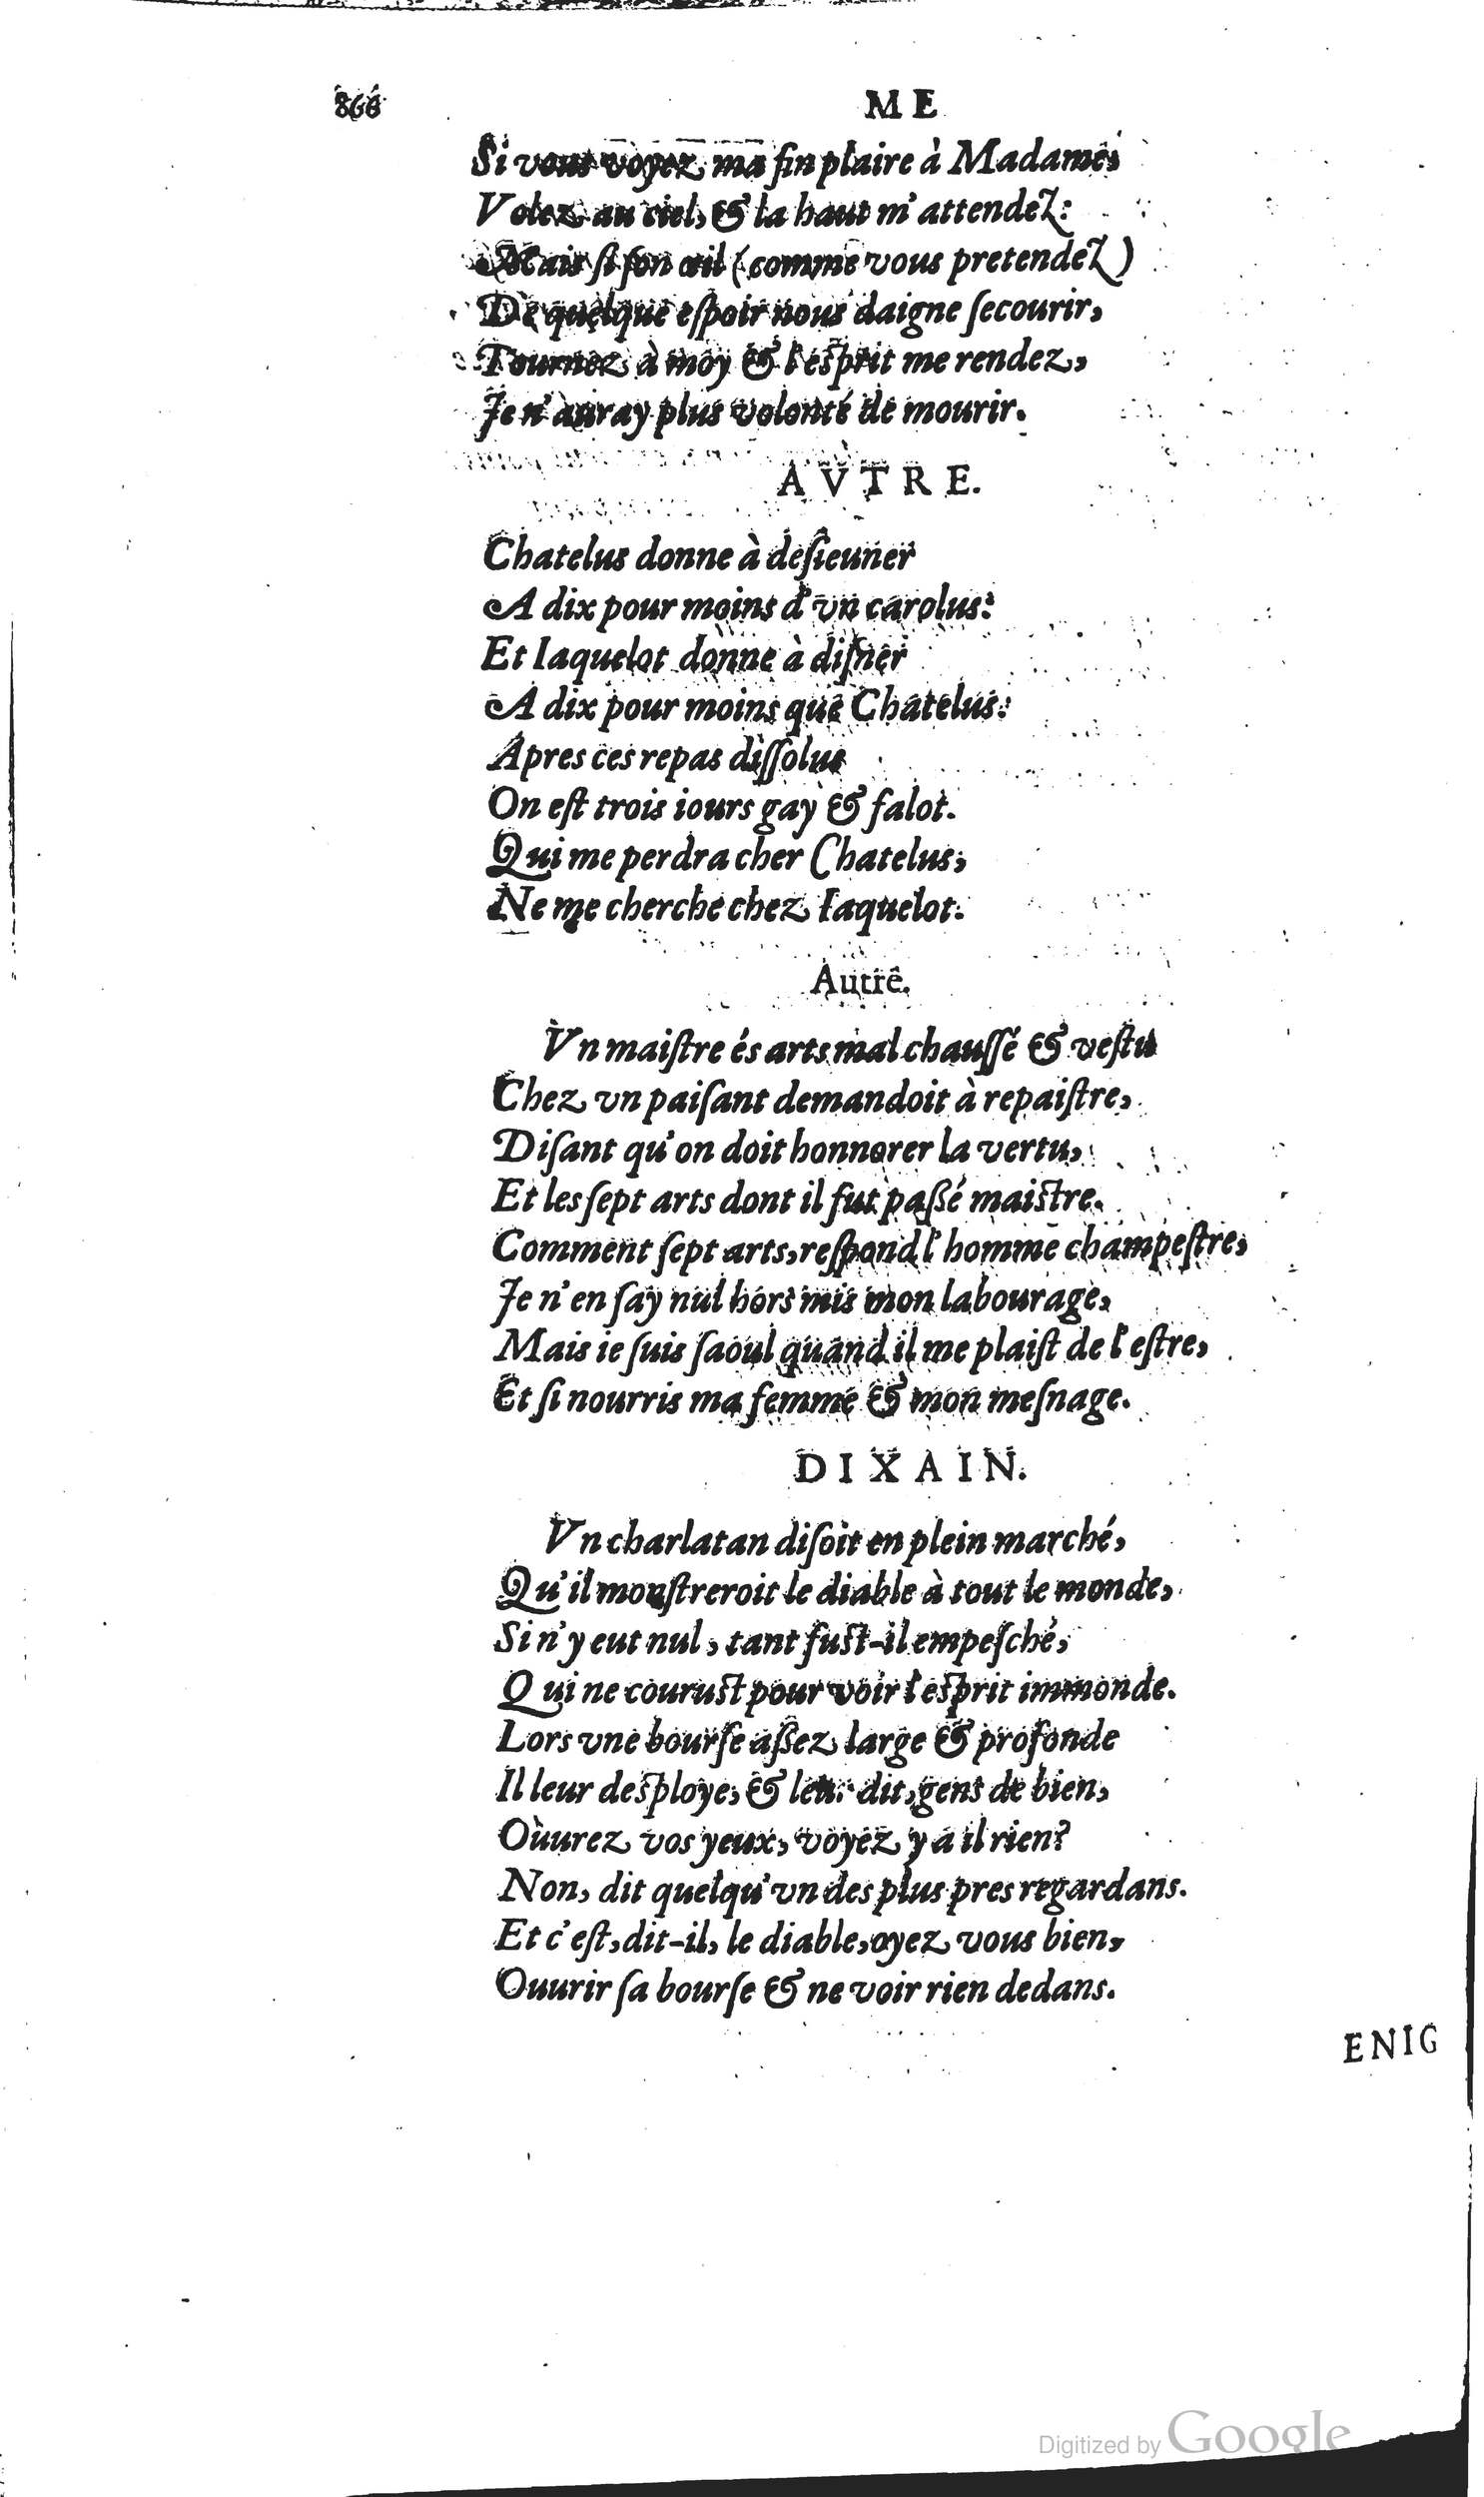 860 ME
Si vous voyez ma fin plaire à Madame,
Volez au ciel, & la haut m'attendez:
Mais si son œil (comme vous pretendez)
De quelque espoir nous daigne ſecourir,
Tournez à moy & l'esprit me rendez,
Je n'auray plus volonté de mourir.
AVTRE.
Chatelus donne à deſieuner
A dix pour moins d'vn carolus:
Et Iaquelot donne à diſner
A dix pour moins que Chatelus:
Apres ces repas diſſolus
On eſt trois iours gay & falot.
Qui me perdra cher Chatelus,
Ne me cherche chez Iaquelot.
Autre.
Vn maiſtre és arts mal chauſſé & veſtu
Chez vn paiſant demandoit à repaiſtre,
Diſant qu'on doit honnorer la vertu,
Et les ſept arts dont il fut paßé maistre.
Comment ſept arts, reſpond l'homme champeſtre,
Je n'en ſay nul hors mis mon labourage,
Mais ie ſuis ſaoul quand il me plaiſt de l'eſtre,
Et ſi nourris ma femme & mon meſnage.
DIXAIN.
Vn charlatan diſoit en plein marché,
Qu'il monſtreroit le diable à tout le monde,
Si n'y eut nul, tant fust-il empeſché,
Qui ne courust pour voir l'esprit immonde.
Lors vne bourſe aßez large & profonde
Il leur desploye, & leur dit, gens de bien,
Ouurez vos yeux, voyez y a il rien?
Non, dit quelqu'vn des plus pres regardans.
Et c'eſt, dit-il, le diable, oyez vous bien,
Ouurir ſa bourſe & ne voir rien dedans.
ENIG
Digitized by Google